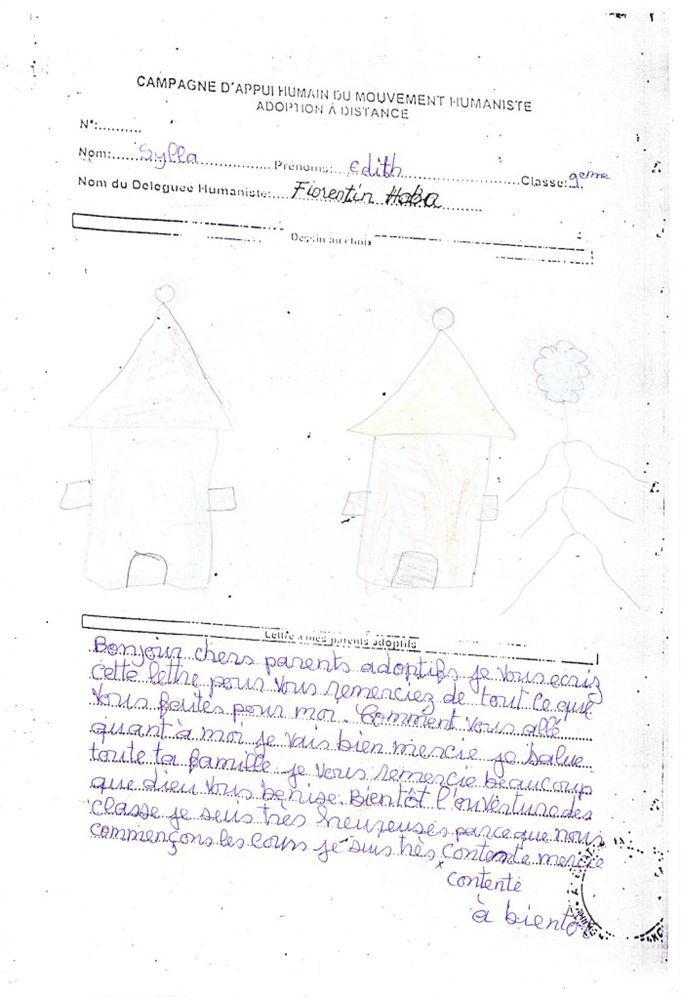 CAMPAGNE D'APPUI HUMAIN DU MOUVEMENT HUMANISTE
ADOPTION À DISTANCE
N°:..........
Nom:....Sylla..............Prénoms: Edith..................Classe:9eme
Nom du Deleguée Humaniste:....Florentin Haba
Dessin au choix
Lettre a mes parents adoptifs
Bonjour chers parents adoptifs je vous ecris
cette lettre pour vous remerciez de tout ce que
vous faites pour moi. Comment vous allé
quant à moi je vais bien mercie je salue
toute ta famille je vous remercie beaucoup
que dieu vous benise. Bientôt l'ouverture des
classe je suis très heureuses parce que nous
commençons les cours je suis très contente mercie
x contente
à bientôt